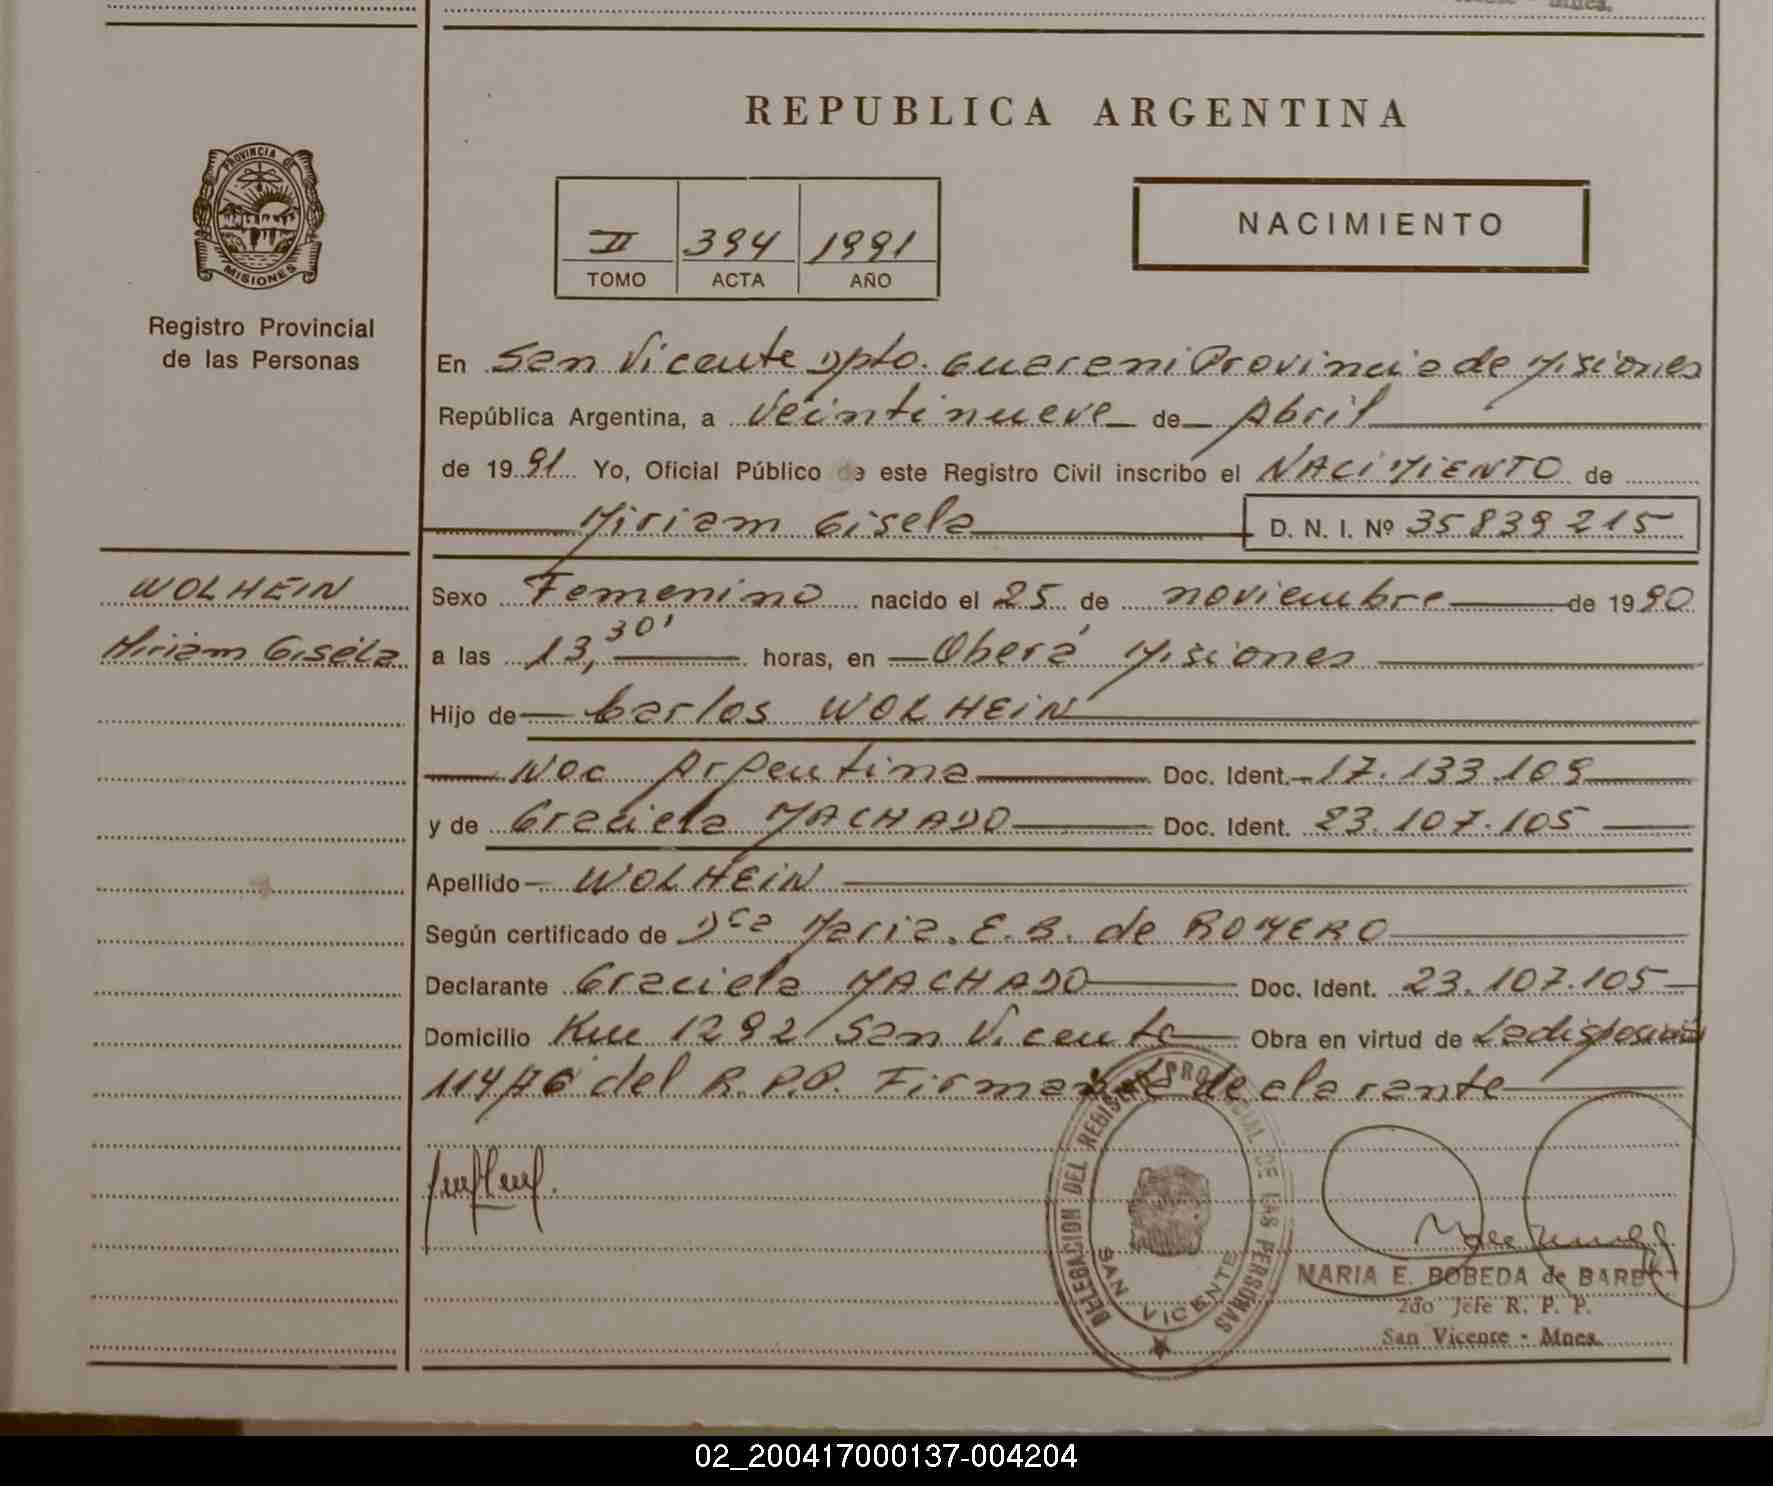 REPUBLICA ARGENTINA
PROVINCIA DE
MISIONES
Registro Provincial
de las Personas
II 394 1991
TOMO ACTA AÑO
NACIMIENTO
En San Vicente Dpto. Guarani Provincia de Misiones
República Argentina, a veintinueve de Abril
de 1991 Yo, Oficial Público de este Registro Civil inscribo el NACIMIENTO de
Miriam Gisela D. N. I. Nº 35839215
WOLHEIN
Miriam Gisela
Sexo Femenino nacido el 25 de noviembre de 1990
a las 13,30' horas, en Oberá Misiones
Hijo de Carlos WOLHEIN
Nac Argentina Doc. Ident. 17.133.109
y de Graciela MACHADO Doc. Ident. 23.107.105
Apellido WOLHEIN
Según certificado de Dca Maria. E. B. de ROMERO
Declarante Graciela MACHADO Doc. Ident. 23.107.105
Domicilio Km 1292 San Vicente Obra en virtud de La disposición
114/76 del R.P.P. Firma la declarante
DELEGACION DEL REGISTRO PROVINCIAL DE LAS PERSONAS
SAN VICENTE
MARIA E. BOBEDA de
2do Jefe R. P. P.
San Vicente - Mnes.
02_200417000137-004204